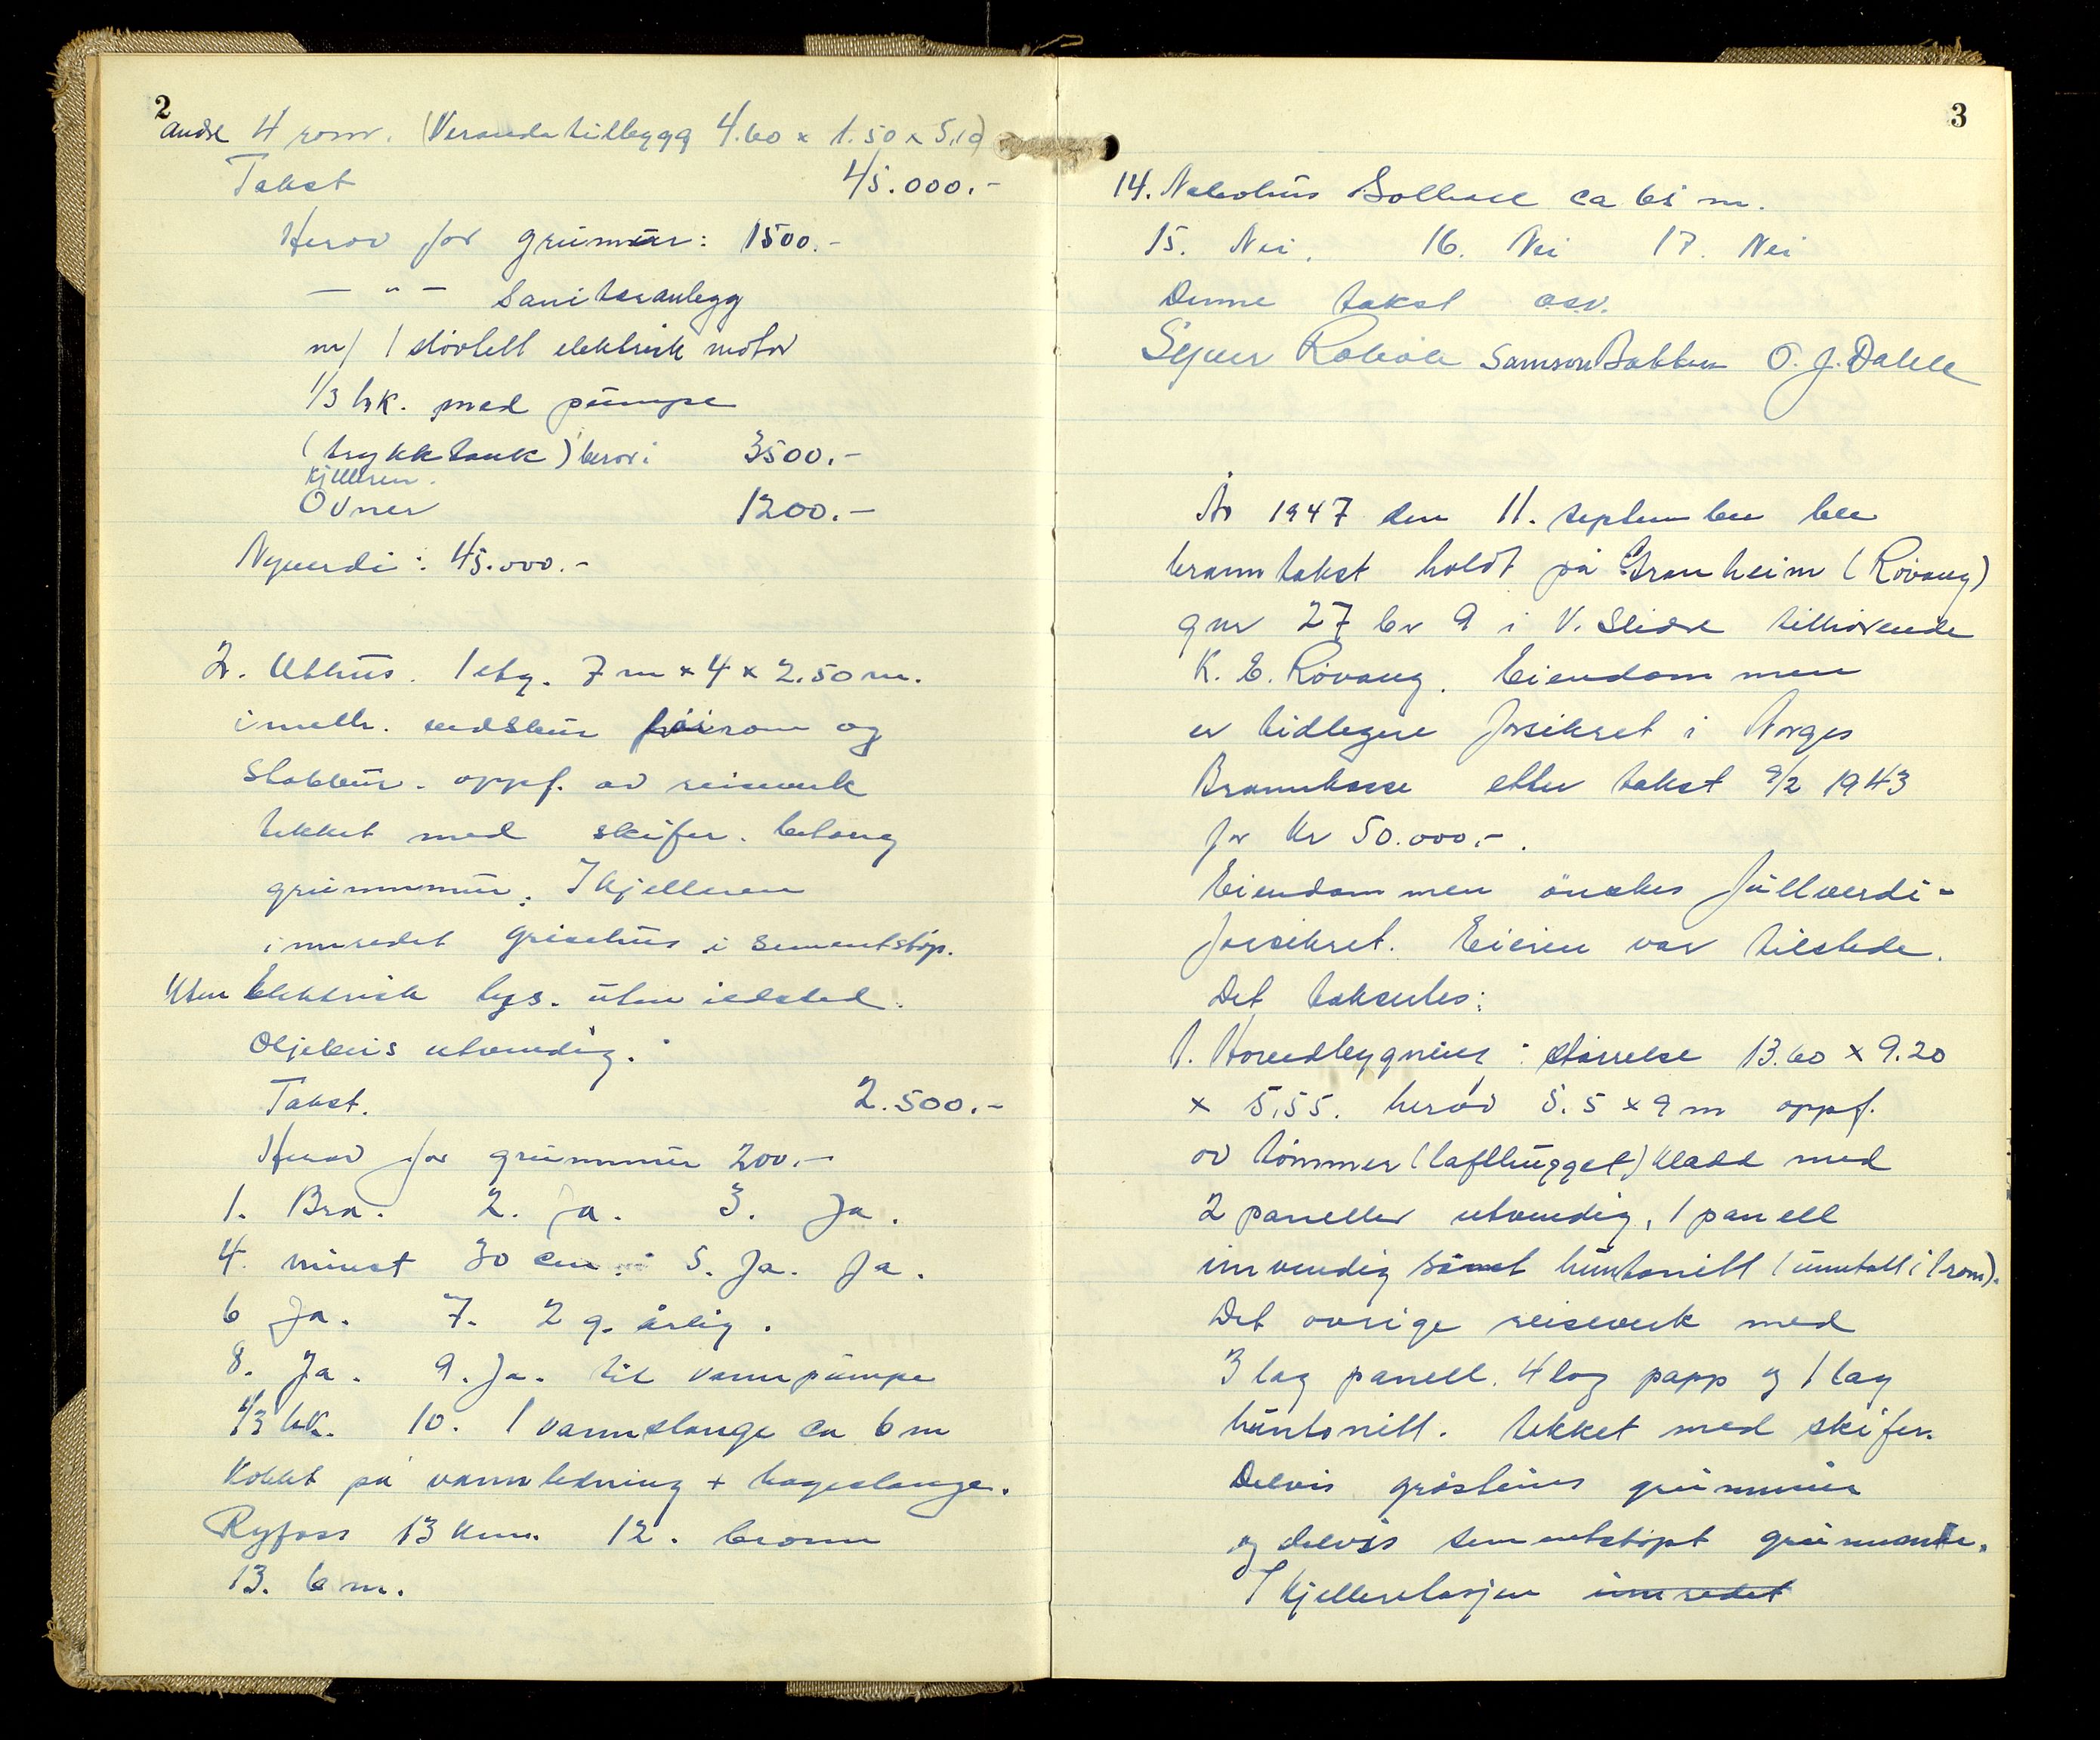 2
andre 4 rom. (Verandatilbygg 4.60 x 1.50 x 5,10)
Takst 45.000.-
Herav for grunmur: 1500.-
— " — Sanitæranlegg
m/ 1 støvtett elektrisk motor
1/3 hk. med pumpe
(trykktank) herav i 3500.-
kjelleren.
Ovner 1200.-
Nyverdi: 45.000.-
2. Uthus. 1 etg. 7 m x 4 x 2.50 m.
inneh. vedskur rom og
Stabbur. oppf. av reisverk
tekket med skifer. betong
grunnmur. I kjelleren
innredet grisehus i sementstøp.
Uten Elektrisk lys. uten ildsted.
Oljebeis utvendig.
Takst. 2.500.-
Herav for grunnmur 200.-
1. Bra. 2. Ja. 3. Ja.
4. minst 30 cm. 5. Ja. Ja.
6 Ja. 7. 2 g. årlig.
8. Ja. 9. Ja. til vannpumpe
1/3 hk. 10. 1 vannslange ca 6 m
Koblet på vannledning + hageslange.
Ryfoss 13 km. 12. brønn
13. 6 m.
3
14. Nabohus Solhall ca 65 m.
15. Nei. 16. Nei 17. Nei
Denne takst osv.
Samson Bakken O. J. Dahle
År 1947 den 11. september ble
branntakst holdt på Granheim (Røvang)
gnr 27 br 9 i V. Slidre tilhørende
K. E. Røvang. Eiendommen
er tidligere forsikret i Norges
Brannkasse etter takst 9/2 1943
for kr 50.000.-.
Eiendommen ønskes fullverdi-
forsikret. Eieren var tilstede.
Det takseres:
1. Hovedbygning: størrelse 13.60 x 9.20
x 5,55. herav 5.5 x 9 m oppf.
av tømmer (lafthugget) kledd med
2 paneller utvendig, 1 panell
innvendig samt huntonitt (unntatt i 1 rom).
Det øvrige reisverk med
3 lag panell. 4 lag papp og 1 lag
huntonitt. tekket med skifer.
Delvis gråsteins grunnmur
og delvis sementstøpt grunnmur.
I kjelleretasjen innredet